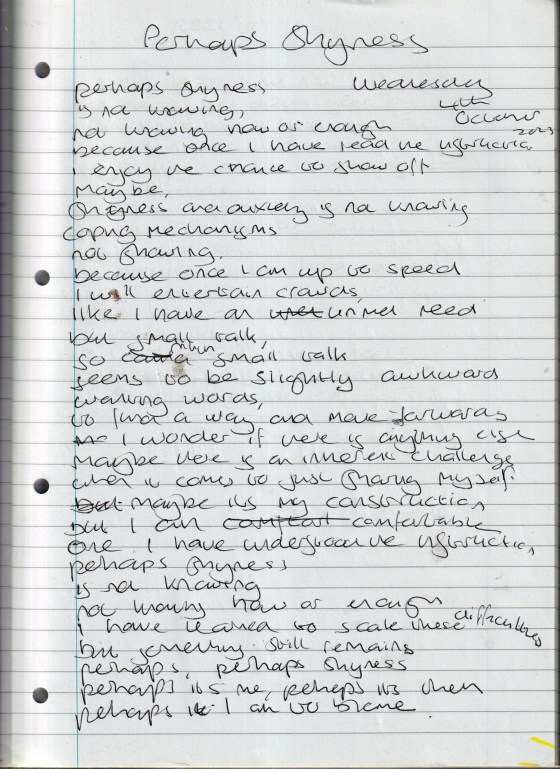 Perhaps Shyness
perhaps shyness
Wednesday
4th
October
2023
is not knowing,
not knowing how or enough
because once I have read the instruction
I enjoy the chance to show off
maybe,
Shyness and anxiety is not knowing
coping mechanisms
not showing.
because once I am up to speed
I will entertain crowds
like I have an inner need
but small talk,
so small talk
seems to be slightly awkward
walking words,
to find a way and move forwards
I wonder if there is anything else
maybe there is an inherent challenge
when it comes to just sharing myself.
but maybe its my construction
but I am comfort comfortable
one I have understood the instruction
perhaps shyness
is not knowing
not knowing how or enough
i have learned to scale these difficulties
but something still remains
perhaps, perhaps shyness
perhaps its me, perhaps its them
perhaps I am to blame.